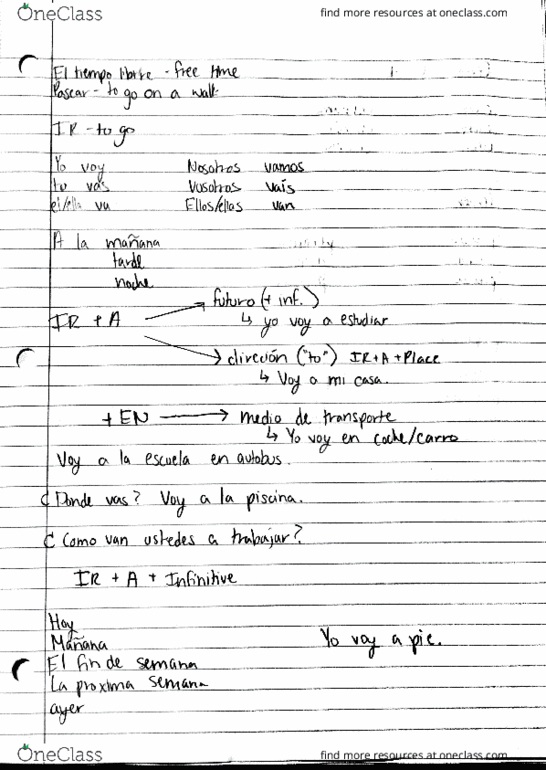 OneClass
find more resources at oneclass.com
El tiempo libre - free time
Pascar - to go on a walk
IR - to go
Yo voy Nosotros vamos
tu vas Vosotros vais
el/ella va Ellos/ellas van
A la mañana
tarde
noche
IR + A
futuro (+ inf.)
↳ yo voy a estudiar
direción ("to") IR+A+Place
↳ Voy a mi casa.
+ EN → medio de transporte
↳ Yo voy en coche/carro
Voy a la escuela en autobus.
¿Donde vas? Voy a la piscina.
¿Como van ustedes a trabajar?
IR + A + Infinitive
Hoy
Mañana
Yo voy a pie.
El fin de semana
La proxima semana
ayer
OneClass
find more resources at oneclass.com